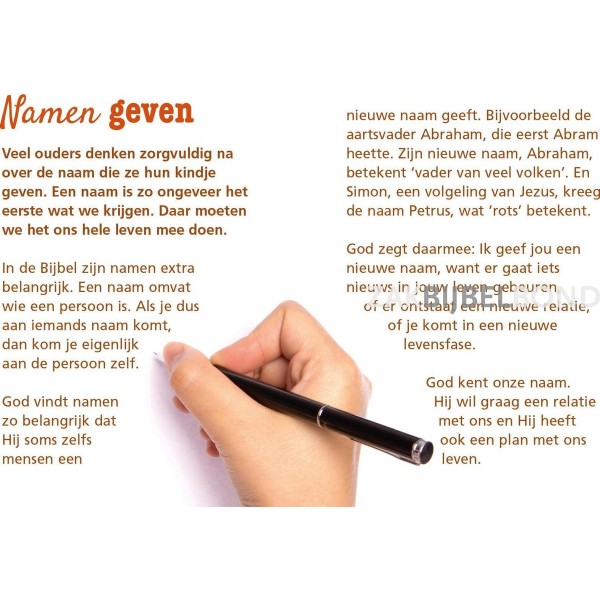 Namen geven
Veel ouders denken zorgvuldig na
over de naam die ze hun kindje
geven. Een naam is zo ongeveer het
eerste wat we krijgen. Daar moeten
we het ons hele leven mee doen.
In de Bijbel zijn namen extra
belangrijk. Een naam omvat
wie een persoon is. Als je dus
aan iemands naam komt,
dan kom je eigenlijk
aan de persoon zelf.
God vindt namen
zo belangrijk dat
Hij soms zelfs
mensen een
nieuwe naam geeft. Bijvoorbeeld de
aartsvader Abraham, die eerst Abram
heette. Zijn nieuwe naam, Abraham,
betekent ‘vader van veel volken’. En
Simon, een volgeling van Jezus, kreeg
de naam Petrus, wat ‘rots’ betekent.
God zegt daarmee: Ik geef jou een
nieuwe naam, want er gaat iets
nieuws in jouw leven gebeuren
ZAKBIJBELBOND
of er ontstaat een nieuwe relatie,
of je komt in een nieuwe
levensfase.
God kent onze naam.
Hij wil graag een relatie
met ons en Hij heeft
ook een plan met ons
leven.